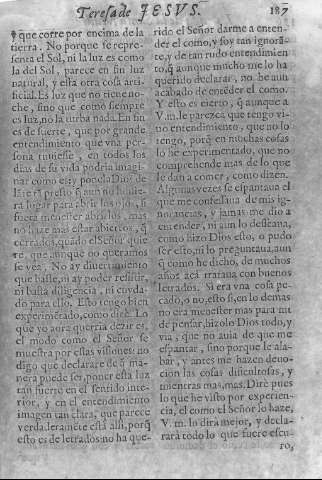 Teresa de JESVS. 187
q̃ que corre por encima de la
tierra. No porque se repre-
senta el Sol, ni la luz es como
la del Sol, parece en fin luz
natural, y esta otra cosa arti-
ficial. Es luz que no tiene no-
che, sino que como siempre
es luz, no la turba nada. En fin
es de suerte, que por grande
entendimiento que vna per-
sona tuuiesse, en todos los
dias de su vida podria imagi-
nar como es: y ponela Dios de-
lante tã presto, q̃ aun no huuie-
ra lugar para abrir los ojos, si
fuera menester abrirlos, mas
no haze mas estar abiertos, q̃
cerrados, quãdo el Señor quie
re, que aunque no queramos
se vea. No ay diuertimiento
que baste, ni ay poder resistir,
ni basta diligencia, ni cuyda-
do para ello. Esto tengo bien
experimẽtado, como dirè. Lo
que yo aora querria dezir es,
el modo como el Señor se
muestra por estas visiones: no
digo que declararè de q̃ ma-
nera puede ser, poner esta luz
tan fuerte en el sentido inte-
rior, y en el entendimiento
imagen tan clara, que parece
verdaderamẽte està alli, porq̃
esto es de letrados: no ha que-
rido el Señor darme a enten-
der el como, y soy tan ignorã-
te, y de tan rudo entendimien
to, q̃ aunque mucho me lo ha
querido declarar, no he aun
acabado de entẽder el como.
Y esto es cierto, q̃ aunque a
V.m. le parezca que tengo vi-
uo entendimiento, que no lo
tengo, porq̃ en muchas cosas
lo he experimentado, que no
comprehende mas de lo que
le dan a comer, como dizen.
Algunas vezes se espantaua el
que me confessaua de mis ig-
norancias, y jamas me dio a
entender, ni aun lo desseaua,
como hizo Dios esto, o pudo
ser esto, ni lo preguntaua, aun
q̃ como he dicho, de muchos
años acà trataua con buenos
letrados. Si era vna cosa pe-
cado, o no, esto si, en lo demas
no era menester mas para mi
de pensar, hizolo Dios todo, y
via, que no auia de que me
espantar, sino porque le ala-
bar, y antes me hazen deuo-
cion las cosas dificultosas, y
mientras mas, mas. Dirè pues
lo que he visto por experien-
cia, el como el Señor lo haze,
V. m. lo dirà mejor, y decla-
rarà todo lo que fuere escu-
ro,